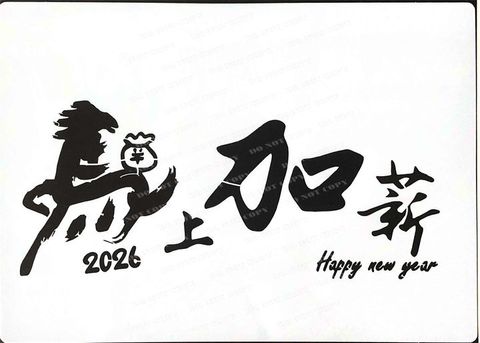 馬上加薪
2026
Happy new year
DO NOT COPY